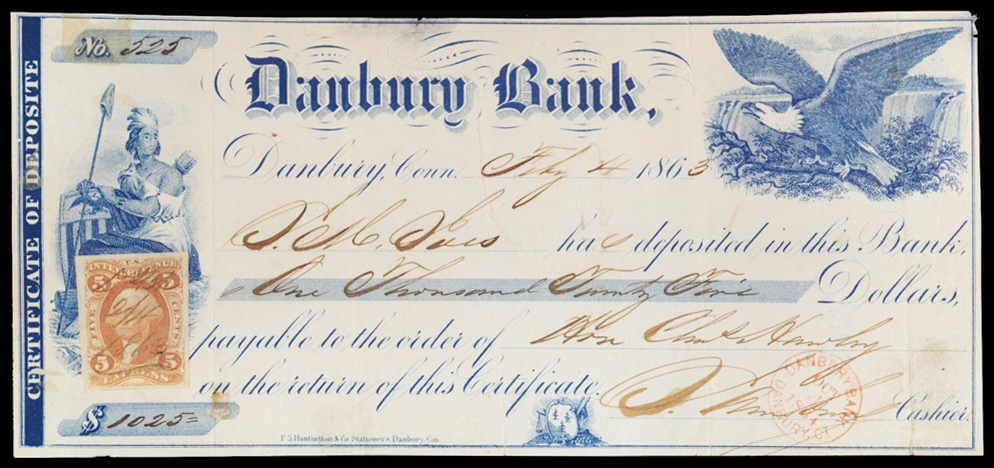 No. 525
CERTIFICATE OF DEPOSITE
Danbury Bank,
Danbury, Conn. Feby 4 1863
has deposited in this Bank,
One Thousand Twenty Five Dollars,
payable to the order of Hon Chas Hawley
on the return of this Certificate.
Cashier.
$ 1025=
INTER. REVENUE
5 5
FIVE CENTS
5 5
EXPRESS
DANBURY BANK
DANBURY, CT.
F. S. Huntington & Co. Stationer's, Danbury, Con.